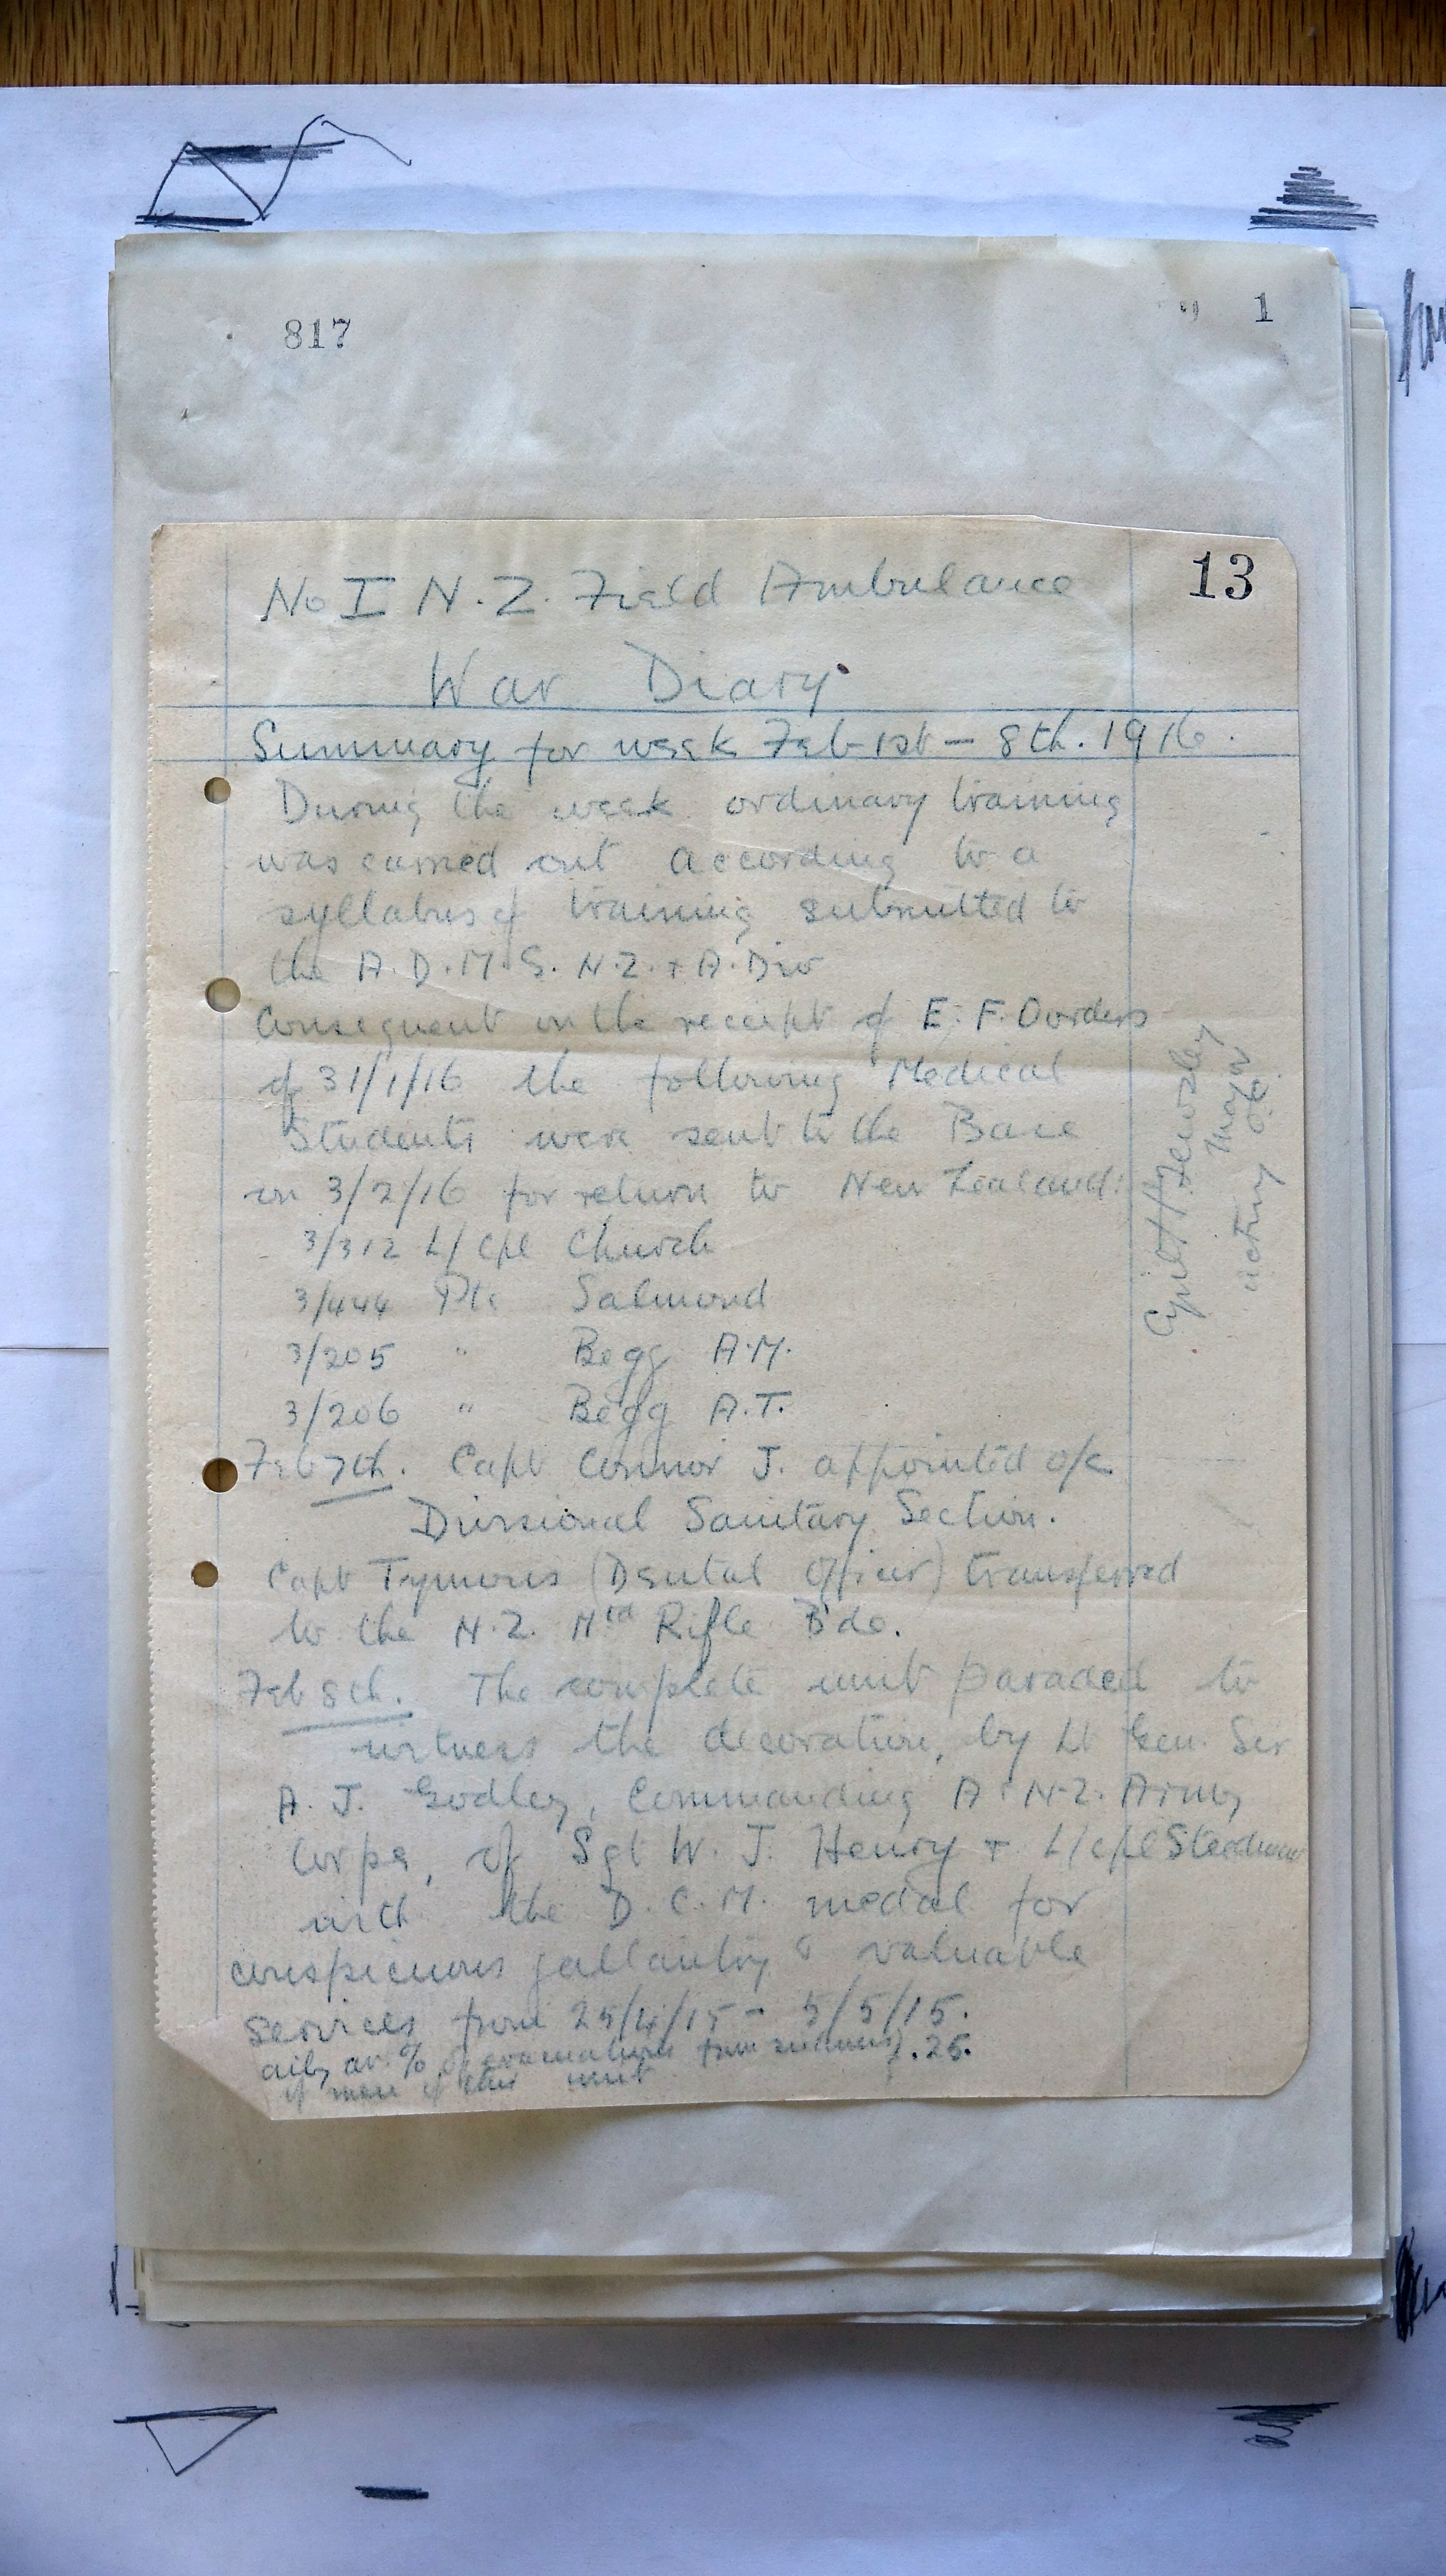 817
1
13
No I N.Z. Field Ambulance
War Diary
Summary for week Feb 1st - 8th. 1916.
During the week ordinary training
was carried out according to a
syllabus of training submitted to
the A.D.M.S. N.Z. & A. Div
Consequent on the receipt of E.F. Oorders
of 31/1/16 the following Medical
Students were sent to the Base
on 3/2/16 for return to New Zealand:
3/312 L/cpl Church
3/444 Pte Salmond
3/205 " Begg A.M.
3/206 " Begg A.T.
Feb 7th. Capt Connor J. appointed o/c
Divisional Sanitary Section.
Capt Tymons (Dental Officer) transferred
to the N.Z. Mtd Rifle B'de.
Feb 8th. The complete unit paraded to
witness the decoration, by Lt Gen. Sir
A. J. Godley, Commanding A & N.Z. Army
Corps, of Sgt W. J. Henry & L/cpl Steedman
with the D.C.M. medal for
conspicuous gallantry & valuable
services from 25/4/15 - 5/5/15.
aily av. % of evacuations from sickness) .25.
of men of this unit
Cyril H Tewsley
Major
acting O.C.